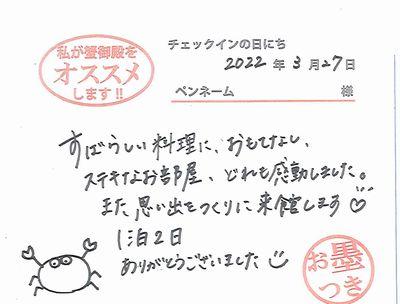 私が蟹御殿を
オススメ
します!!
チェックインの日にち
2022 年 3 月 27 日
ペンネーム 様
すばらしい料理に、おもてなし、
ステキなお部屋、どれも感動しました。
また思い出をつくりに来館します
1泊2日
ありがとうございました
お墨
つき